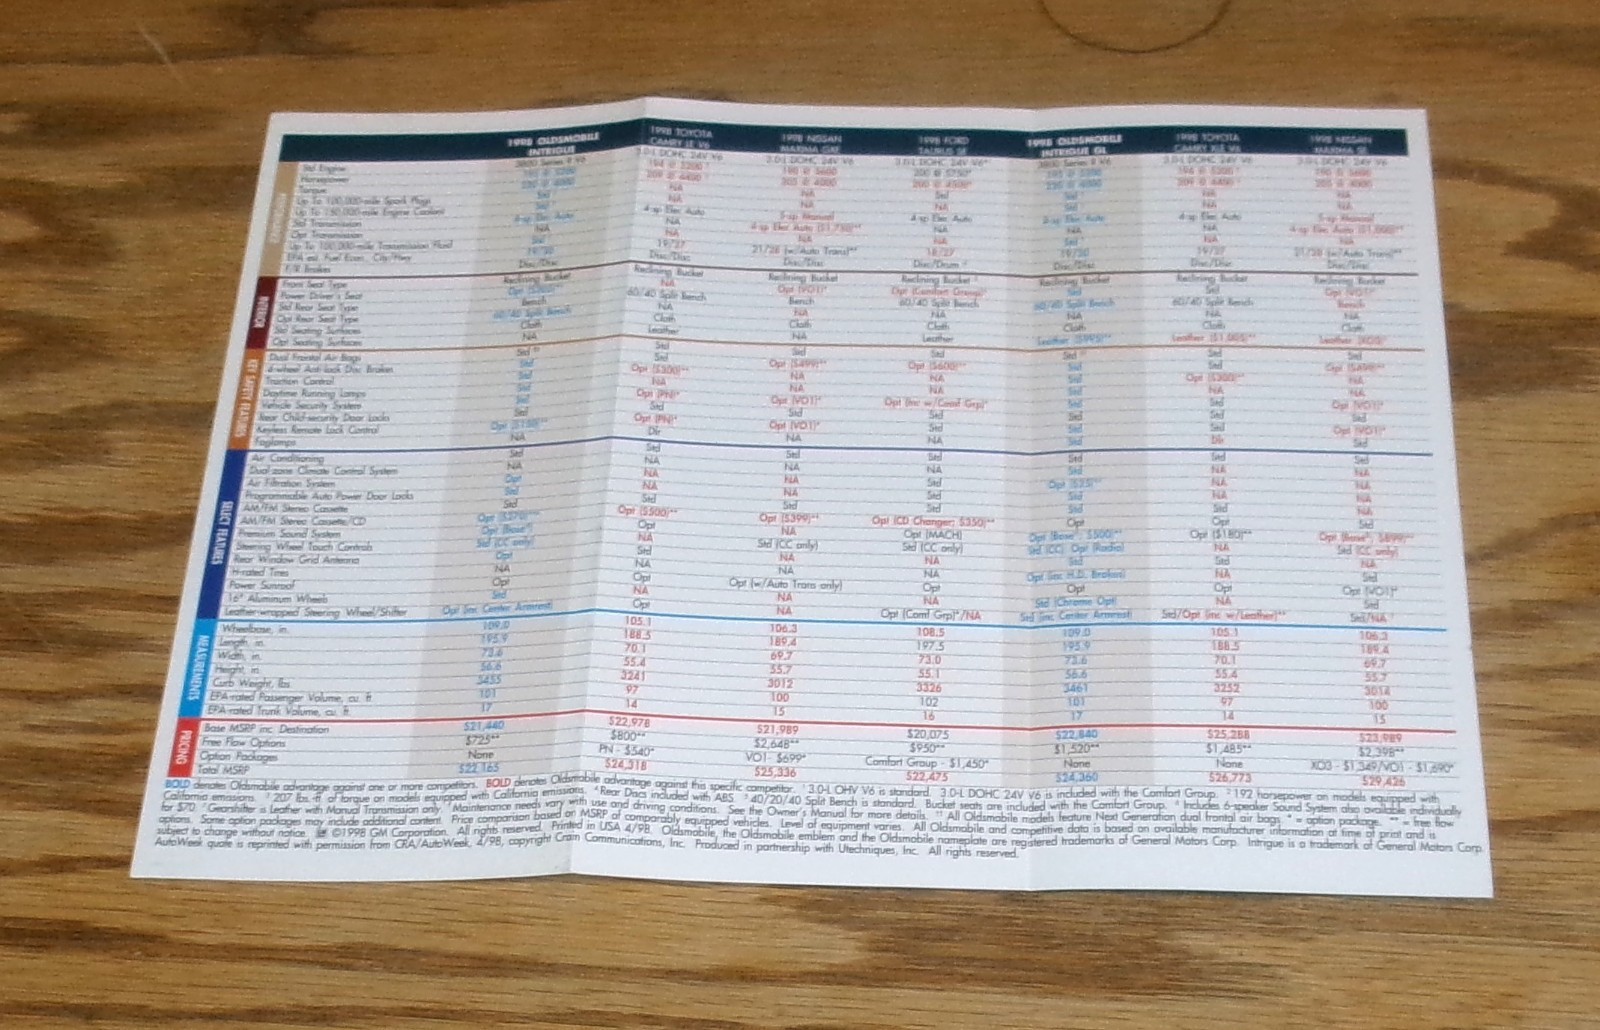 1998 OLDSMOBILE INTRIGUE 1998 TOYOTA CAMRY LE V6 1998 NISSAN MAXIMA GXE 1998 FORD TAURUS SE 1998 OLDSMOBILE INTRIGUE GL 1998 TOYOTA CAMRY XLE V6 1998 NISSAN MAXIMA SE
PERFORMANCE
Std Engine 3800 Series II V6 3.0-L DOHC 24V V6 3.0-L DOHC 24V V6 3.0-L DOHC 24V V6 3800 Series II V6 3.0-L DOHC 24V V6 3.0-L DOHC 24V V6
Horsepower 195 @ 5200 194 @ 5200 190 @ 5600 200 @ 5750 195 @ 5200 194 @ 5200 190 @ 5600
Torque 220 @ 4000 209 @ 4400 205 @ 4000 200 @ 4500 220 @ 4000 209 @ 4400 205 @ 4000
Up To 100,000-mile Spark Plugs Std NA NA Std Std NA NA
Up To 150,000-mile Engine Coolant Std NA NA NA Std NA NA
Std Transmission 4-sp Elec Auto 4-sp Elec Auto 5-sp Manual 4-sp Elec Auto 4-sp Elec Auto 4-sp Elec Auto 5-sp Manual
Opt Transmission NA NA 4-sp Elec Auto NA NA NA 4-sp Elec Auto
Up To 100,000-mile Transmission Fluid Std NA NA NA Std NA NA
EPA est. Fuel Econ., City/Hwy 19/30 19/27 21/28 (w/Auto Trans)** 18/27 19/30 19/27 21/28 (w/Auto Trans)**
F/R Brakes Disc/Disc Disc/Disc Disc/Disc Disc/Drum Disc/Disc Disc/Disc Disc/Disc
INTERIOR
Front Seat Type Reclining Bucket Reclining Bucket Reclining Bucket Reclining Bucket Reclining Bucket Reclining Bucket Reclining Bucket
Power Driver's Seat Opt NA Opt (VO1)* Opt (Comfort Group)* Std Std Opt (VO1)*
Std Rear Seat Type Bench 60/40 Split Bench Bench 60/40 Split Bench 60/40 Split Bench 60/40 Split Bench Bench
Opt Rear Seat Type 60/40 Split Bench NA NA NA NA NA NA
Std Seating Surfaces Cloth Cloth Cloth Cloth Cloth Cloth Cloth
Opt Seating Surfaces NA Leather NA Leather Leather ($995)** Leather Leather
KEY SAFETY FEATURES
Dual Frontal Air Bags Std Std Std Std Std Std Std
4-wheel Anti-lock Disc Brakes Std Std Opt ($499)** Opt ($600)** Std Std Opt
Traction Control Std Opt ($300)** NA NA Std Opt ($300)** NA
Daytime Running Lamps Std NA NA NA Std NA NA
Vehicle Security System Std Opt (PN)* Opt (VO1)* Opt (inc w/Comf Grp)* Std Std Opt (VO1)*
Rear Child-security Door Locks Std Std Std Std Std Std Std
Keyless Remote Lock Control Opt ($150)** Opt (PN)* Opt (VO1)* NA Std Std Opt (VO1)*
Foglamps NA Dlr NA NA Std Dlr Std
SELECT FEATURES
Air Conditioning Std Std Std Std Std Std Std
Dual-zone Climate Control System NA NA NA NA Std NA NA
Air Filtration System Opt NA NA Std Opt ($25)** NA NA
Programmable Auto Power Door Locks Std NA NA Std Std NA NA
AM/FM Stereo Cassette Std Std Std Std Std Std Std
AM/FM Stereo Cassette/CD Opt ($270)** Opt ($500)** Opt ($399)** Opt (CD Changer; $350)** Opt Opt Std
Premium Sound System Opt (Bose) Opt NA Opt (MACH) Opt (Bose; $500)** Opt ($180)** Opt (Bose; $899)**
Steering Wheel Touch Controls Std (CC only) NA Std (CC only) Std (CC only) Std (CC), Opt (Radio) NA Std (CC only)
Rear Window Grid Antenna Opt Std NA NA Std Std NA
H-rated Tires NA NA NA NA Opt (inc H.D. Brakes) NA Std
Power Sunroof Opt Opt Opt (w/Auto Trans only) Opt Opt Opt Opt (VO1)*
16" Aluminum Wheels Std NA NA NA Std (Chrome Opt) NA Std
Leather-wrapped Steering Wheel/Shifter Opt (inc Center Armrest) Opt NA Opt (Comf Grp)*/NA Std (inc Center Armrest) Std/Opt (inc w/Leather)** Std/NA
MEASUREMENTS
Wheelbase, in. 109.0 105.1 106.3 108.5 109.0 105.1 106.3
Length, in. 195.9 188.5 189.4 197.5 195.9 188.5 189.4
Width, in. 73.6 70.1 69.7 73.0 73.6 70.1 69.7
Height, in. 56.6 55.4 55.7 55.1 56.6 55.4 55.7
Curb Weight, lbs. 3455 3241 3012 3326 3461 3252 3014
EPA-rated Passenger Volume, cu. ft. 101 97 100 102 101 97 100
EPA-rated Trunk Volume, cu. ft. 17 14 15 16 17 14 15
PRICING
Base MSRP inc. Destination $21,440 $22,978 $21,989 $20,075 $22,840 $25,288 $23,989
Free Flow Options $725** $800** $2,648** $950** $1,520** $1,485** $2,398**
Option Packages None PN - $540* VO1- $699* Comfort Group - $1,450* None None XO3 - $1,349/VO1 - $1,690*
Total MSRP $22,165 $24,318 $25,336 $22,475 $24,360 $26,773 $29,426
BOLD denotes Oldsmobile advantage against one or more competitors. BOLD denotes Oldsmobile advantage against this specific competitor. 3.0-L OHV V6 is standard. 3.0-L DOHC 24V V6 is included with the Comfort Group. 192 horsepower on models equipped with
California emissions. 207 lbs.-ft. of torque on models equipped with California emissions. Rear Discs included with ABS. 40/20/40 Split Bench is standard. Bucket seats are included with the Comfort Group. Includes 6-speaker Sound System also available individually
for $70. Gearshifter is Leather with Manual Transmission only. Maintenance needs vary with use and driving conditions. See the Owner's Manual for more details. †† All Oldsmobile models feature Next Generation dual frontal air bags. * = option package. ** = free flow
options. Some option packages may include additional content. Price comparison based on MSRP of comparably equipped vehicles. Level of equipment varies. All Oldsmobile and competitive data is based on available manufacturer information at time of print and is
subject to change without notice. ©1998 GM Corporation. All rights reserved. Printed in USA 4/98. Oldsmobile, the Oldsmobile emblem and the Oldsmobile nameplate are registered trademarks of General Motors Corp. Intrigue is a trademark of General Motors Corp.
AutoWeek quote is reprinted with permission from CRA/AutoWeek, 4/98, copyright Crain Communications, Inc. Produced in partnership with Utechniques, Inc. All rights reserved.